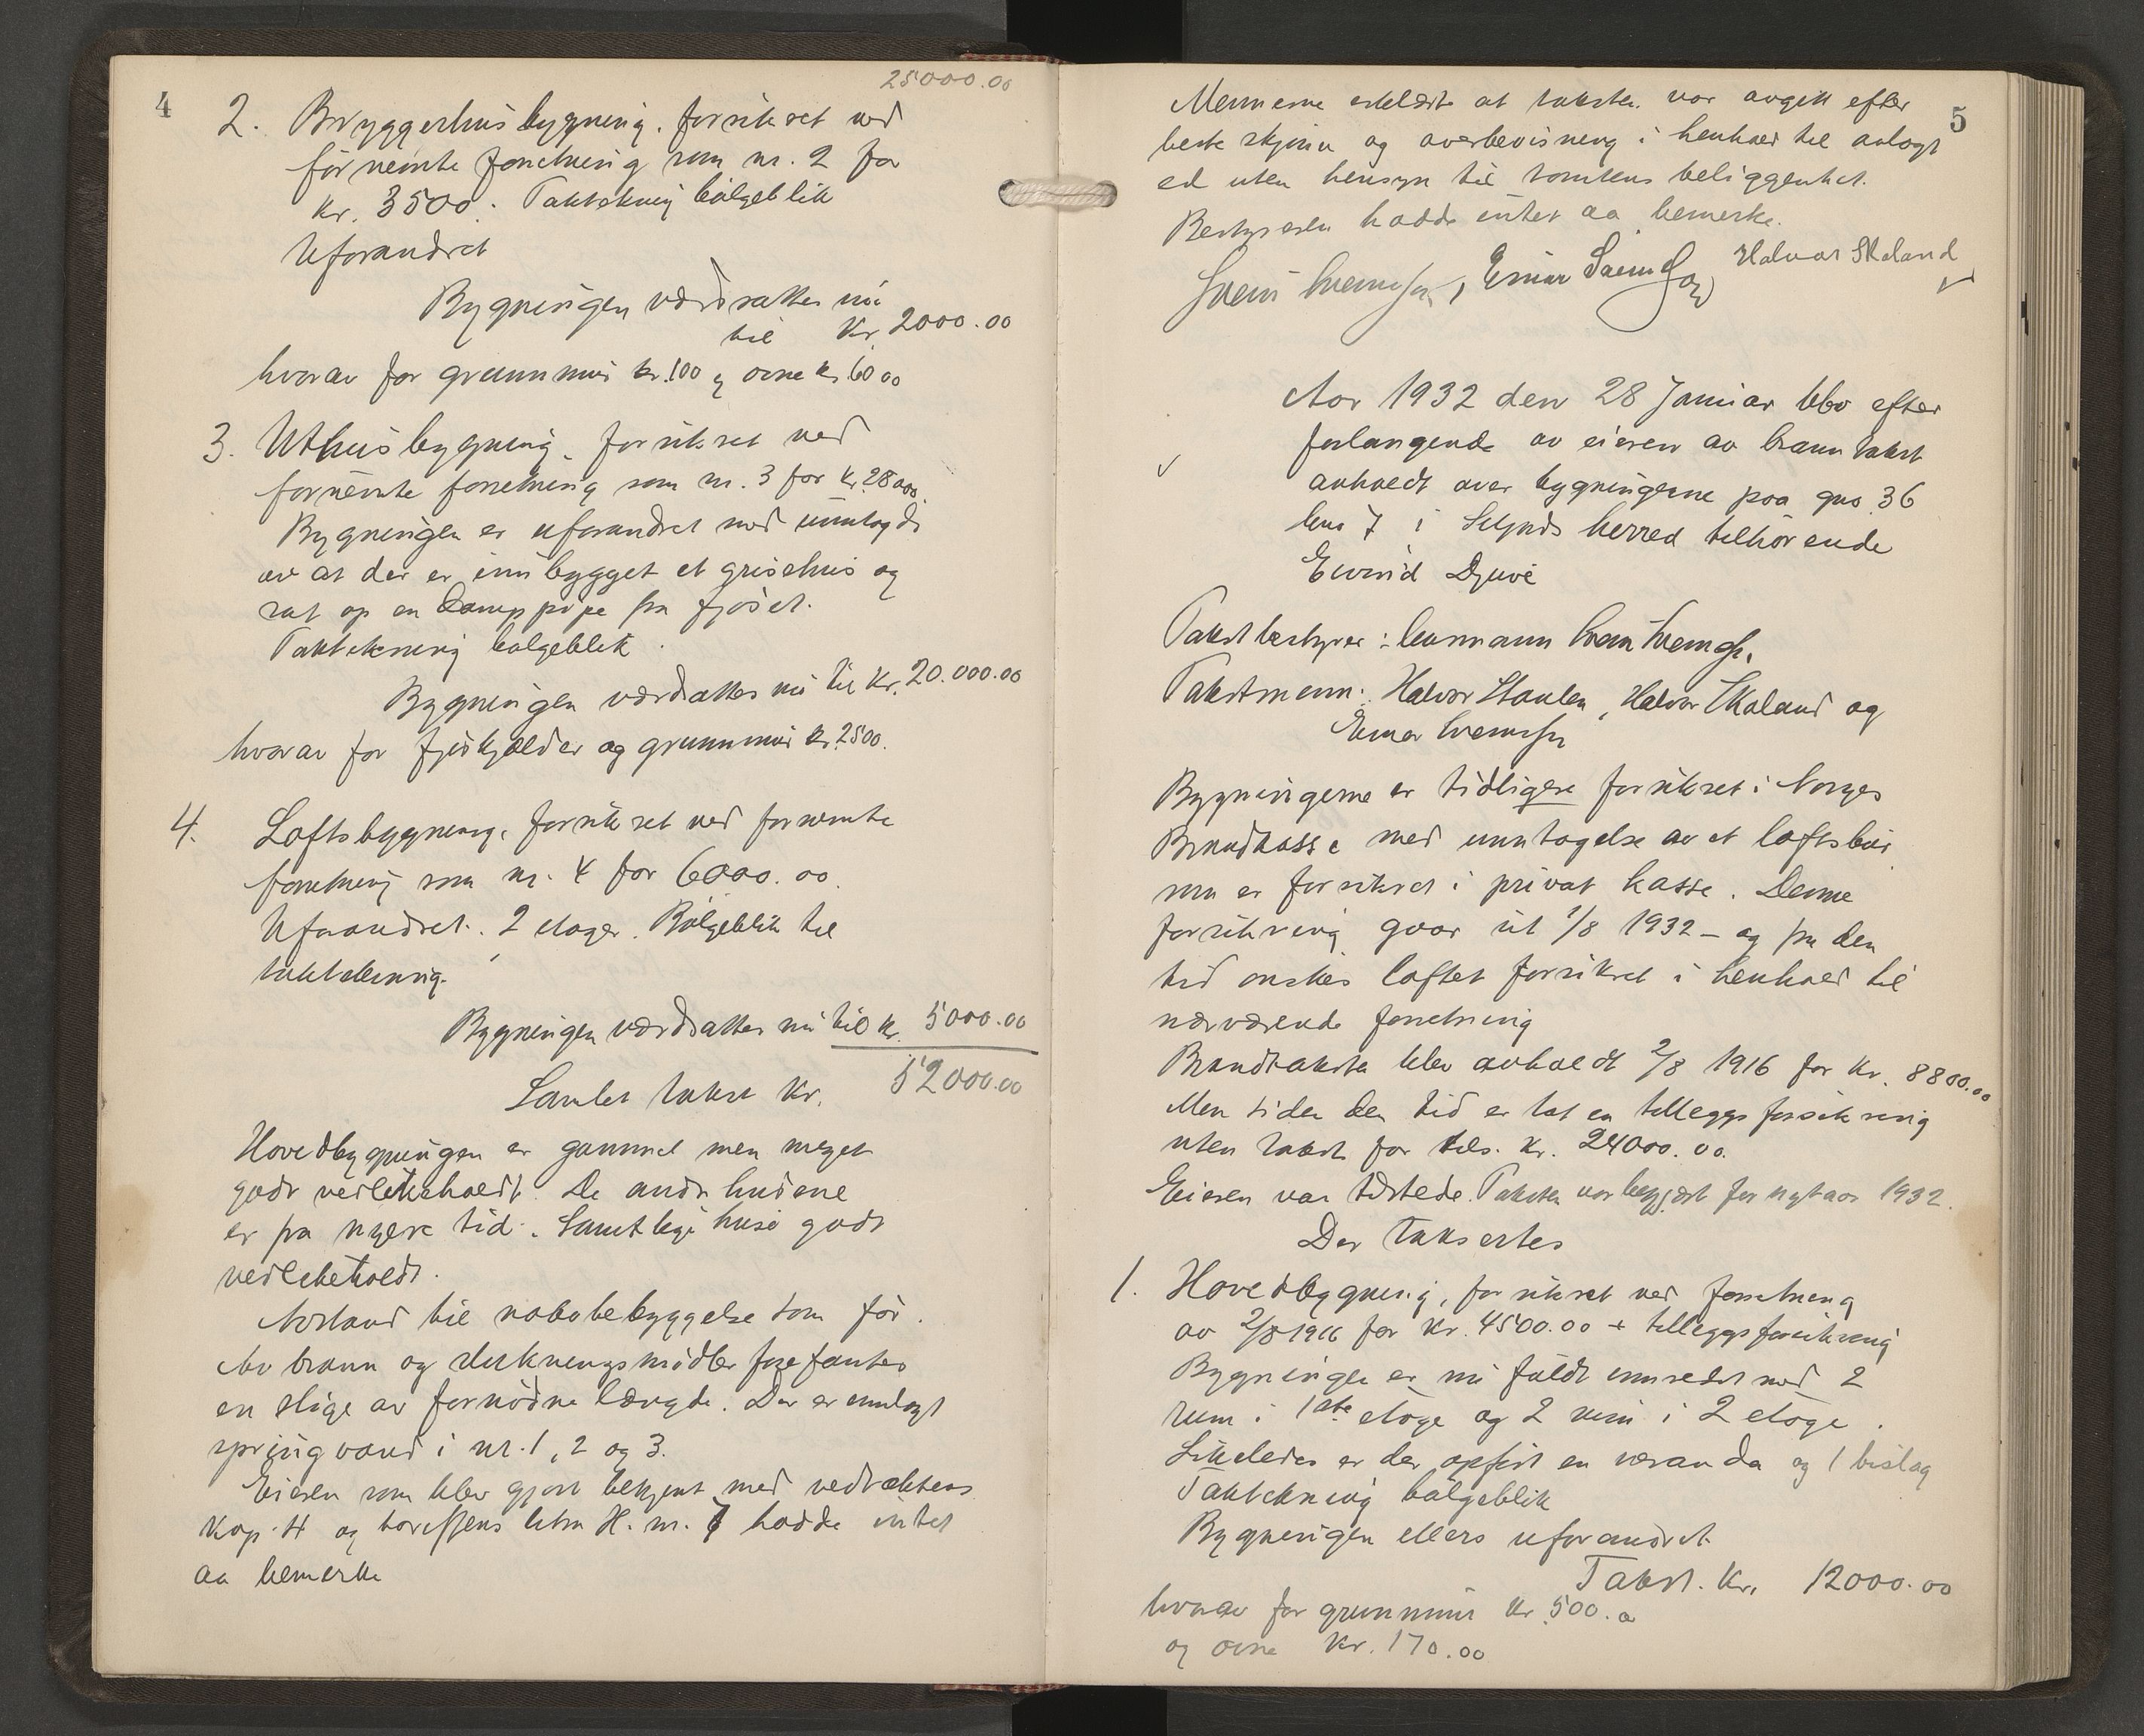 4
25000.00
2. Bryggerhusbygning, forsikret ved
förnevnte forretning som nr. 2 for
kr. 3500. Taktekning bölgeblik
Uforandret
Bygningen værdsattes nu
til Kr. 2000.00
hvorav for grunnmur kr. 100 og ovne kr. 60 00
3. Uthusbygning, forsikret ved
fornevnte forretning som nr. 3 for kr. 28000.
Bygningen er uforandret med unntagds
av at der er innbygget et grisehus og
sat op en Damppipe fra fjöset.
Taktekning bölgeblik.
Bygningen værdsattes nu til kr. 20.000.00
hvorav for fjöskjelder og grunnmur kr. 2500.
4. Loftsbygning, forsikret ved fornevnte
forretning som nr. 4 for 6000.00
Uforandret. 2 etager. Bölgeblik til
taktekning.
Bygningen værdsattes nu til kr. 5000.00
Samlet takst kr. 52000.00
Hovedbygningen er gammel men meget
godt vedlikeholdt. De andre husene
er fra nyere tid. Samtlige huse godt
vedlikeholdt.
Avstand til nabobebyggelse som för.
Av brann og slukningsmidler forefantes
en stige av fornödne længde. Der er innlagt
springvand i nr. 1, 2 og 3.
Eieren som blev gjort bekjent med vedtæktens
Kap. 4 og bareffens litra H. nr. 7 hadde intet
aa bemerke
5
Mennene erklærte at taksten var avgitt efter
beste skjönn og overbevisning i henhold til avlagt
ed uten hensyn til tomtens beliggenhet.
Bestyreren hadde intet aa bemerke.
Svein Sveinsson, Einar Sveinsson Halvor Skaland
Aar 1932 den 28 Januar blev efter
forlangende av eieren av branntakst
avholdt over bygningerne paa gno 36
bno 7 i Seljord herred tilhörende
Eivind Djuve
Takstbestyrer: lensmann Svein Sveinss.
Takstmenn: Halvor Staulen, Halvor Skaland og
Einar Sveinsson
Bygningerne er tidligere forsikret i Norges
Brandkasse med unntagelse av et loftsbur
som er forsikret i privat kasse. Denne
forsikring gaar ut 1/8 1932 – og fra den
tid önskes loftet forsikret i henhold til
nærværende forretning
Brandtaksten blev avholdt 2/8 1916 for kr. 8800.00
Men siden den tid er tat en tilleggsforsikring
uten takst for tils. kr. 24000.00.
Eieren var tilstede. Taksten var begjært for nytaar 1932.
Der taksertes
1. Hovedbygning, forsikret ved forretning
av 2/8 1916 for kr. 4500.00 + tilleggsforsikring
Bygningen er nu fuldt innredet med 2
rum i 1ste etage og 2 rum i 2 etage.
Likeledes er der opfört en veranda og 1 bislag
Taktekning bölgeblik
Bygningen ellers uforandret
Takst. Kr. 12000.00
hvorav for grunnmur kr. 500.00
og ovne kr. 170.00